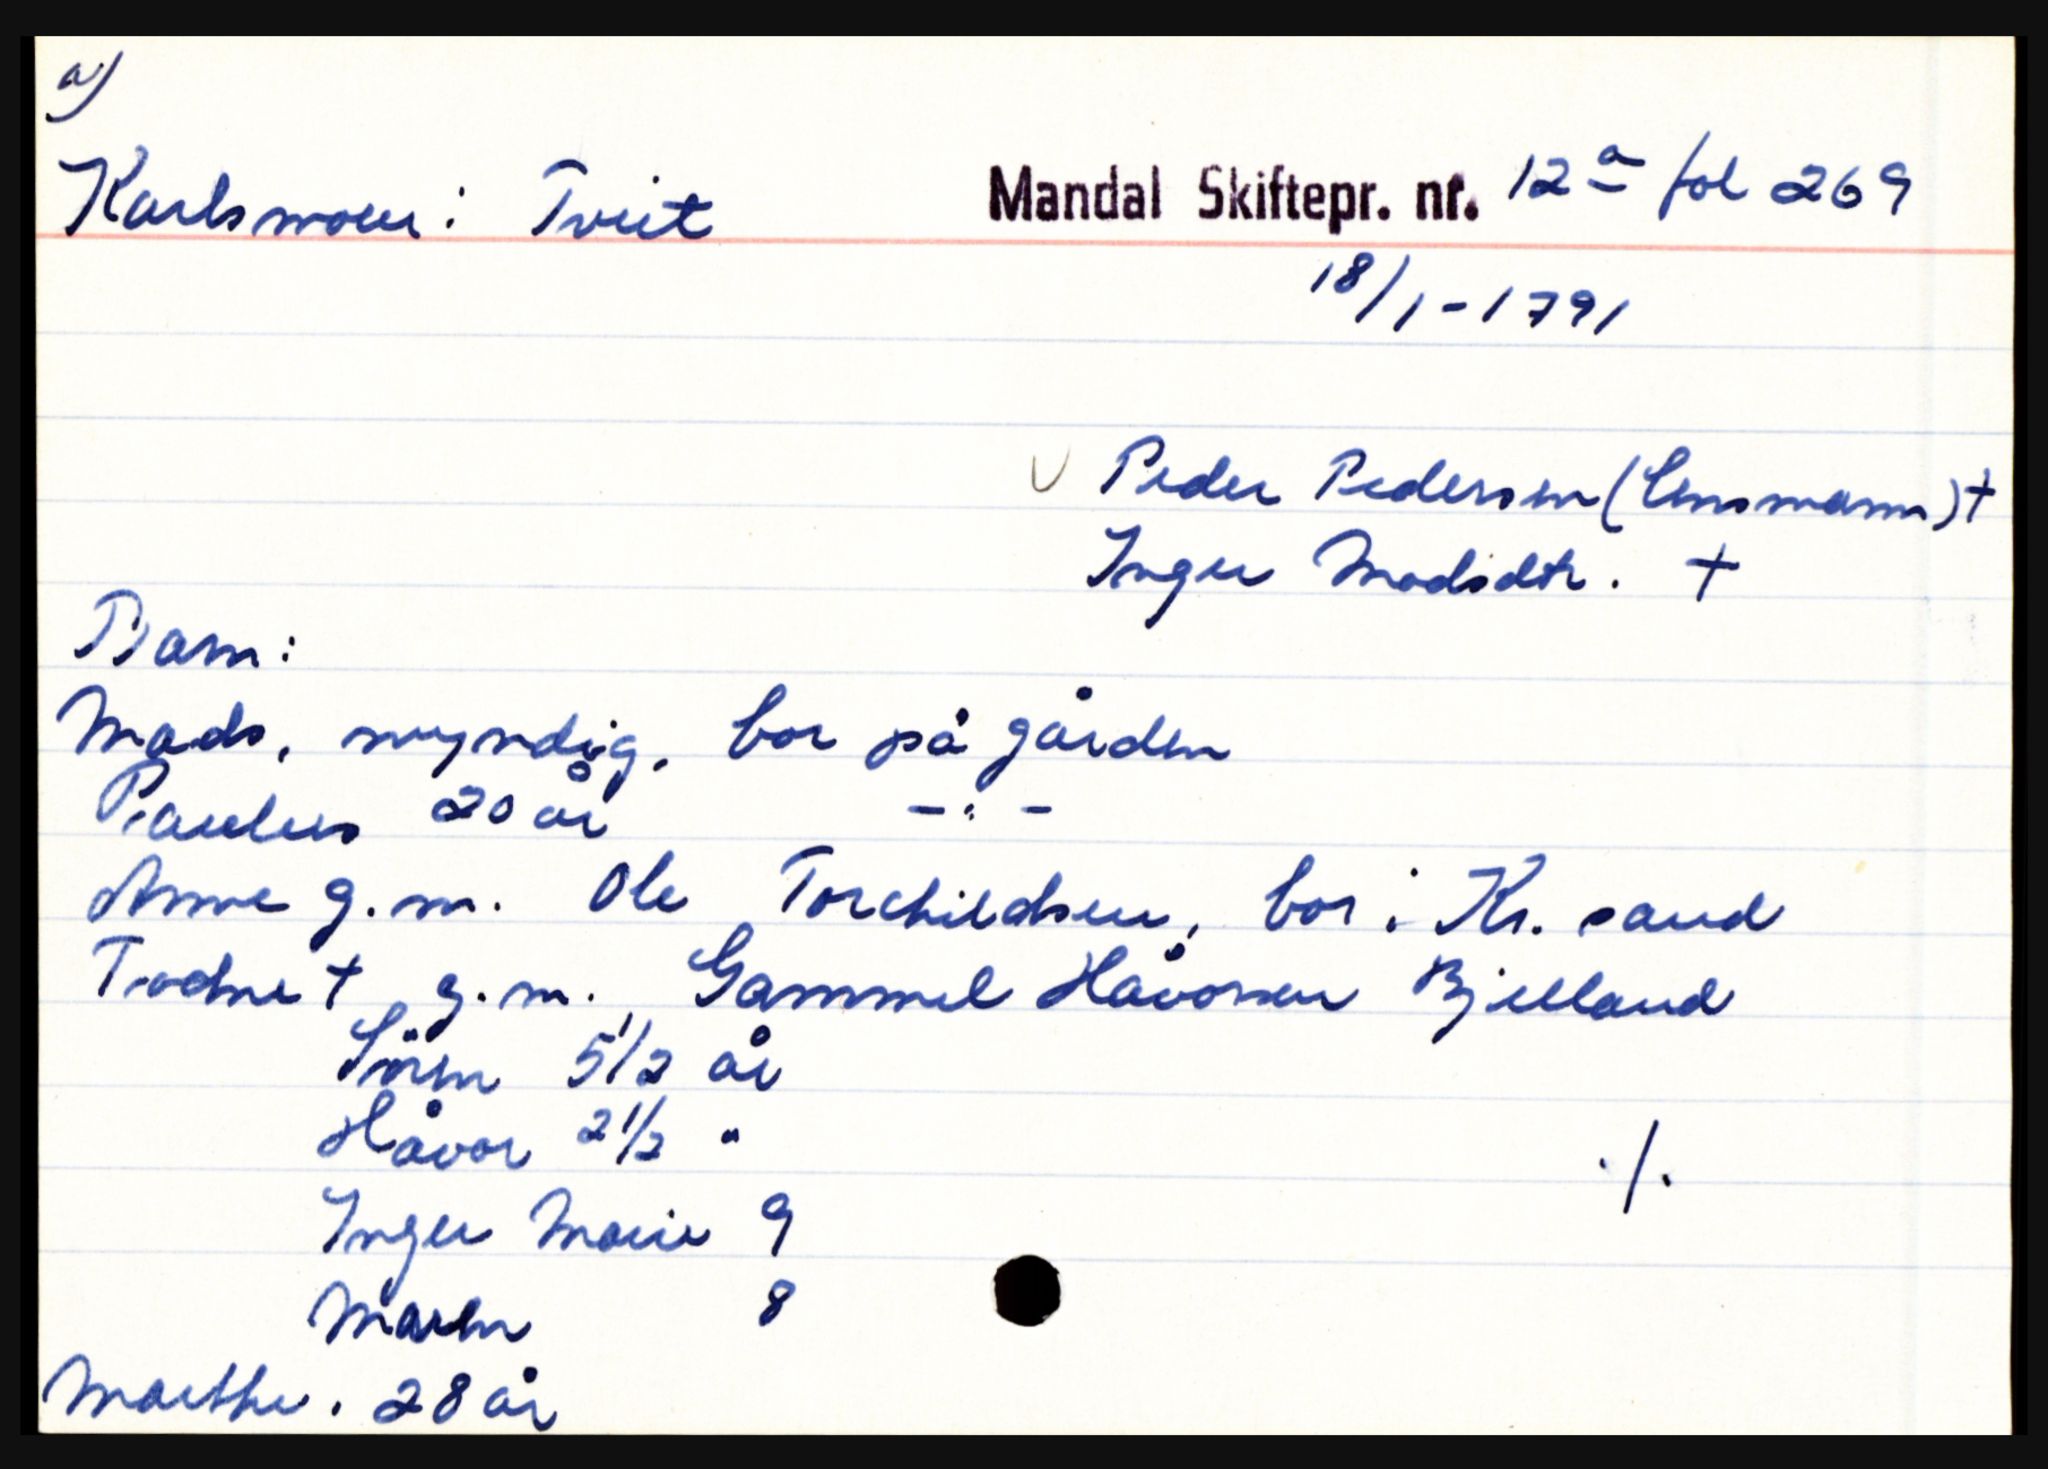 a)
Karlsmoen: Tveit Mandal Skiftepr. nr. 12 a fol 269
18/1-1791
Peder Pedersen (Lensmann) †
Inger Madsdtr. †
Barn:
Mads, myndig, bor på gården
Paulus 20 år -"-
Anne g.m. Ole Torchildsen, bor i Kr.sand
Todne † g.m. Gammel Håvorsen Bjelland
Sören 5 1/2 år
Håvor 2 1/2 "
Inger Marie 9
Maren 8
Marthe. 28 år
./.